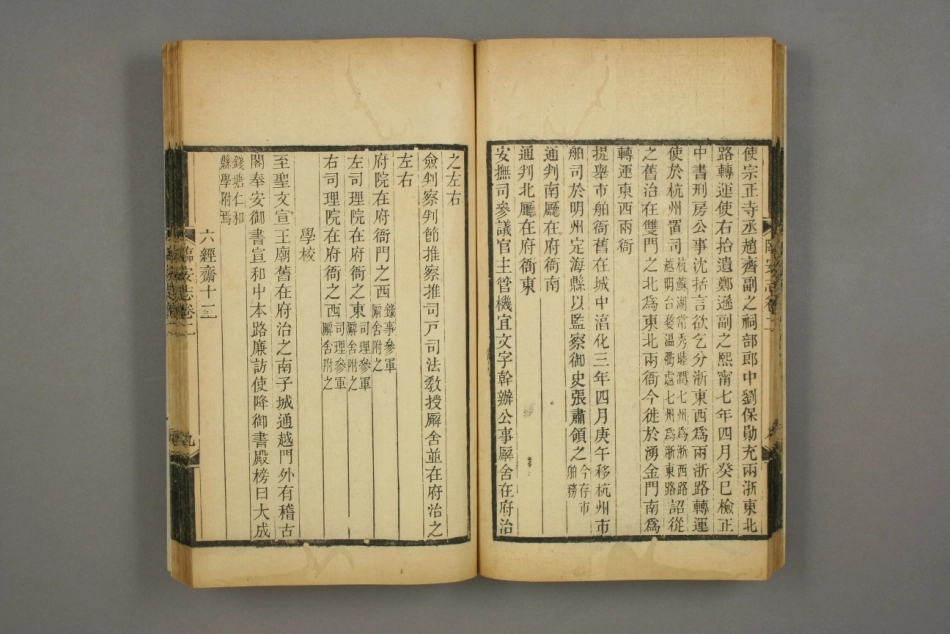 使宗正寺丞趙齊副之祠部郎中劉保勛充兩浙東北
路轉運使右拾遺鄭遜副之熙甯七年四月癸巳檢正
中書刑房公事沈括言欲乞分浙東西爲兩浙路轉運
使於杭州置司杭蘇湖常秀睦潤七州爲浙西路越明台婺溫衢處七州爲浙東路詔從
之舊治在雙門之北爲東北兩衙今徙於湧金門南爲
轉運東西兩衙
提舉市舶衙舊在城中淳化三年四月庚午移杭州市
舶司於明州定海縣以監察御史張肅領之今存市舶務
通判南廳在府衙南
通判北廳在府衙東
安撫司參議官主管機宜文字幹辦公事廨舍在府治
之左右
僉判察判節推察推司戸司法敎授廨舍並在府治之
左右
府院在府衙門之西錄事參軍廨舍附之
左司理院在府衙之東司理參軍廨舍附之
右司理院在府衙之西司理參軍廨舍附之
學校
至聖文宣王廟舊在府治之南子城通越門外有稽古
閣奉安御書宣和中本路廉訪使降御書殿榜曰大成
錢塘仁和縣學附焉
六經齋十二
臨安志卷二
九